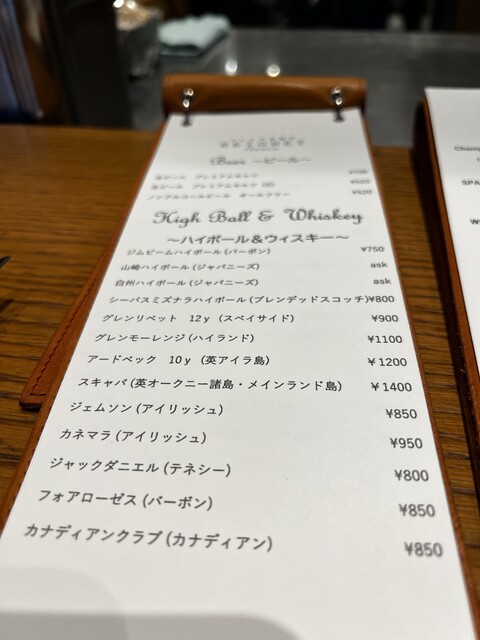 Beer 〜ビール〜
生ビール プレミアムモルツ
生ビール プレミアムモルツ
ノンアルコールビール オールフリー
High Ball & Whiskey
〜ハイボール＆ウィスキー〜
ジムビームハイボール (バーボン) ¥750
山崎ハイボール (ジャパニーズ) ask
白州ハイボール (ジャパニーズ) ask
シーバスミズナラハイボール (ブレンデッドスコッチ) ¥800
グレンリベット 12y (スペイサイド) ¥900
グレンモーレンジ (ハイランド) ¥1100
アードベック 10y (英アイラ島) ¥1200
スキャパ (英オークニー諸島・メインランド島) ¥1400
ジェムソン (アイリッシュ) ¥850
カネマラ (アイリッシュ) ¥950
ジャックダニエル (テネシー) ¥800
フォアローゼス (バーボン) ¥850
カナディアンクラブ (カナディアン) ¥850
Champ
SPA